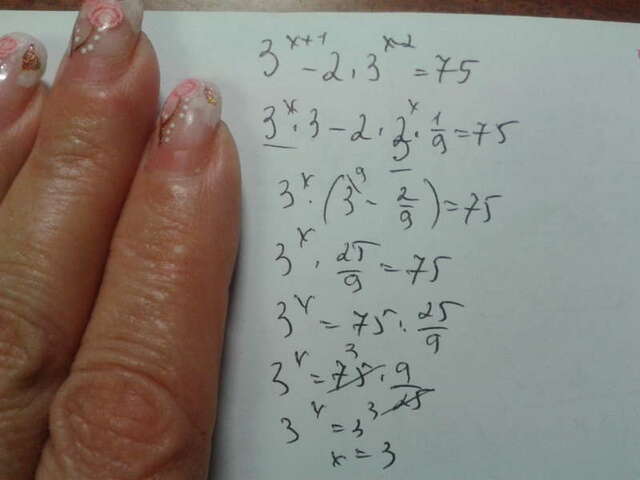 3^{x+1} - 2 · 3^{x-2} = 75
3^x · 3 - 2 · 3^x · 1/9 = 75
3^x · (3^{\9} - 2/9) = 75
3^x · 25/9 = 75
3^x = 75 : 25/9
3^x = 75 3 · 9/25
3^x = 3^3
x = 3